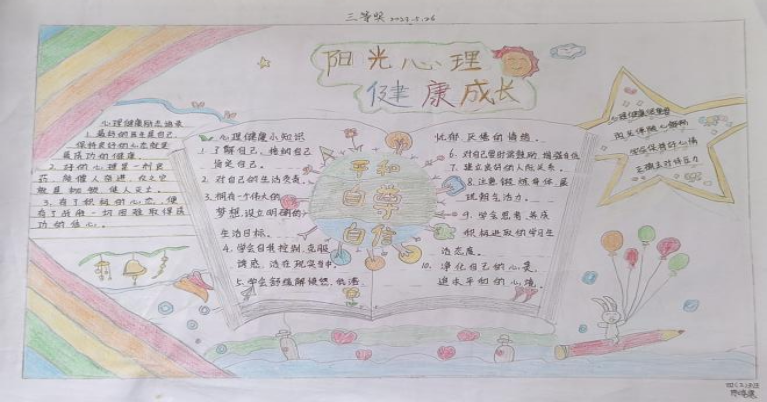 三等奖 2023.5.26
阳光心理
健康成长
心理健康励志语录
1. 最好的医生是自己,
保持良好的心态就是
最成功的健康。
2. 好的心理是一剂良
药,
3. 有了积极的心态,便
有了战胜一切困难取得成
功的信心。
心理健康小知识
1. 了解自己,接纳自己
肯定自己。
2. 对自己的生活负责。
3. 拥有一个伟大的
梦想,设立明确的
生活目标。
4. 学会自我控制,克服
诱惑,活在现实中。
5. 学会舒缓解愤怒,
平和
自尊
自信
忧郁,厌倦的情绪。
6. 对自己时常鼓励,增强自信
7. 建立良好的人际关系。
8. 注意锻炼身体,展
现新生活力。
9. 学会思考,养成
积极进取的学习生
活态度。
10. 净化自己的心灵,
追求平和的心境。
学会保育好心情
正确主对好压力